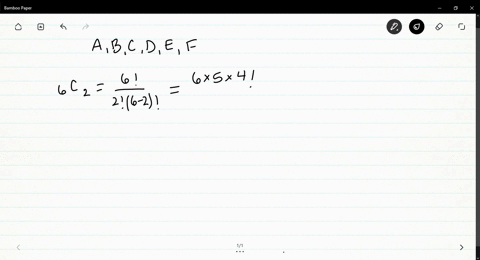 Bamboo Paper
A, B, C, D, E, F
₆C₂ = 6! / 2!(6-2)! = 6×5×4!
1/1